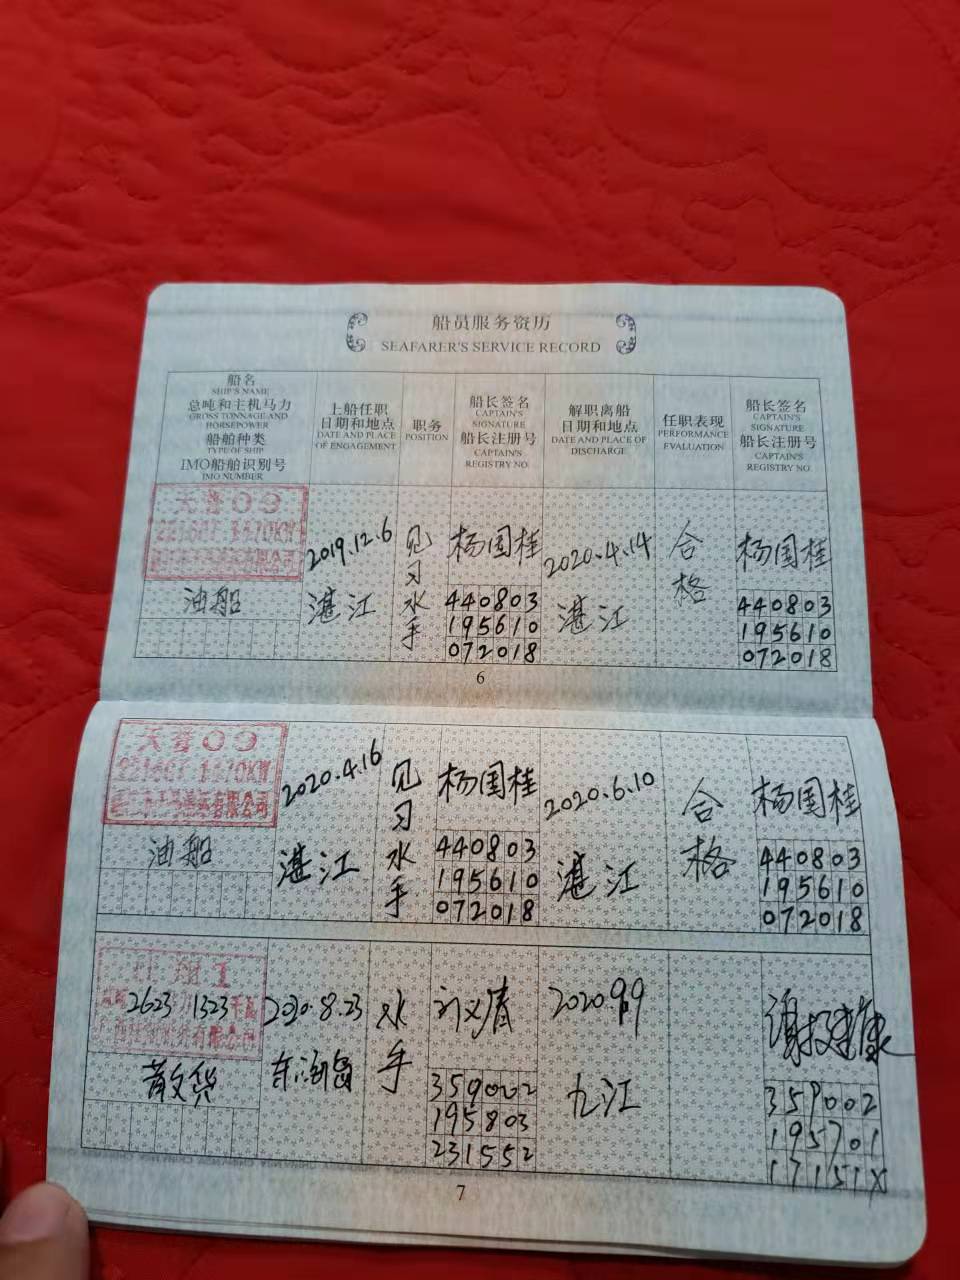 船员服务资历
SEAFARER'S SERVICE RECORD
船名
SHIP'S NAME
总吨和主机马力
GROSS TONNAGE AND
HORSEPOWER
船舶种类
TYPE OF SHIP
IMO船舶识别号
IMO NUMBER
上船任职
日期和地点
DATE AND PLACE
OF ENGAGEMENT
职务
POSITION
船长签名
CAPTAIN'S
SIGNATURE
船长注册号
CAPTAIN'S
REGISTRY NO.
解职离船
日期和地点
DATE AND PLACE OF
DISCHARGE
任职表现
PERFORMANCE
EVALUATION
船长签名
CAPTAIN'S
SIGNATURE
船长注册号
CAPTAIN'S
REGISTRY NO.
油船
2019.12.6
湛江
见习水手
杨国桂
440803
195610
072018
2020.4.14
湛江
合格
杨国桂
440803
195610
072018
6
油船
2020.4.16
湛江
见习水手
杨国桂
440803
195610
072018
2020.6.10
湛江
合格
杨国桂
440803
195610
072018
2623 1323
有限公司
散货
2020.8.23
水手
359002
195803
231552
2020.9.9
九江
359002
195701
17151X
7